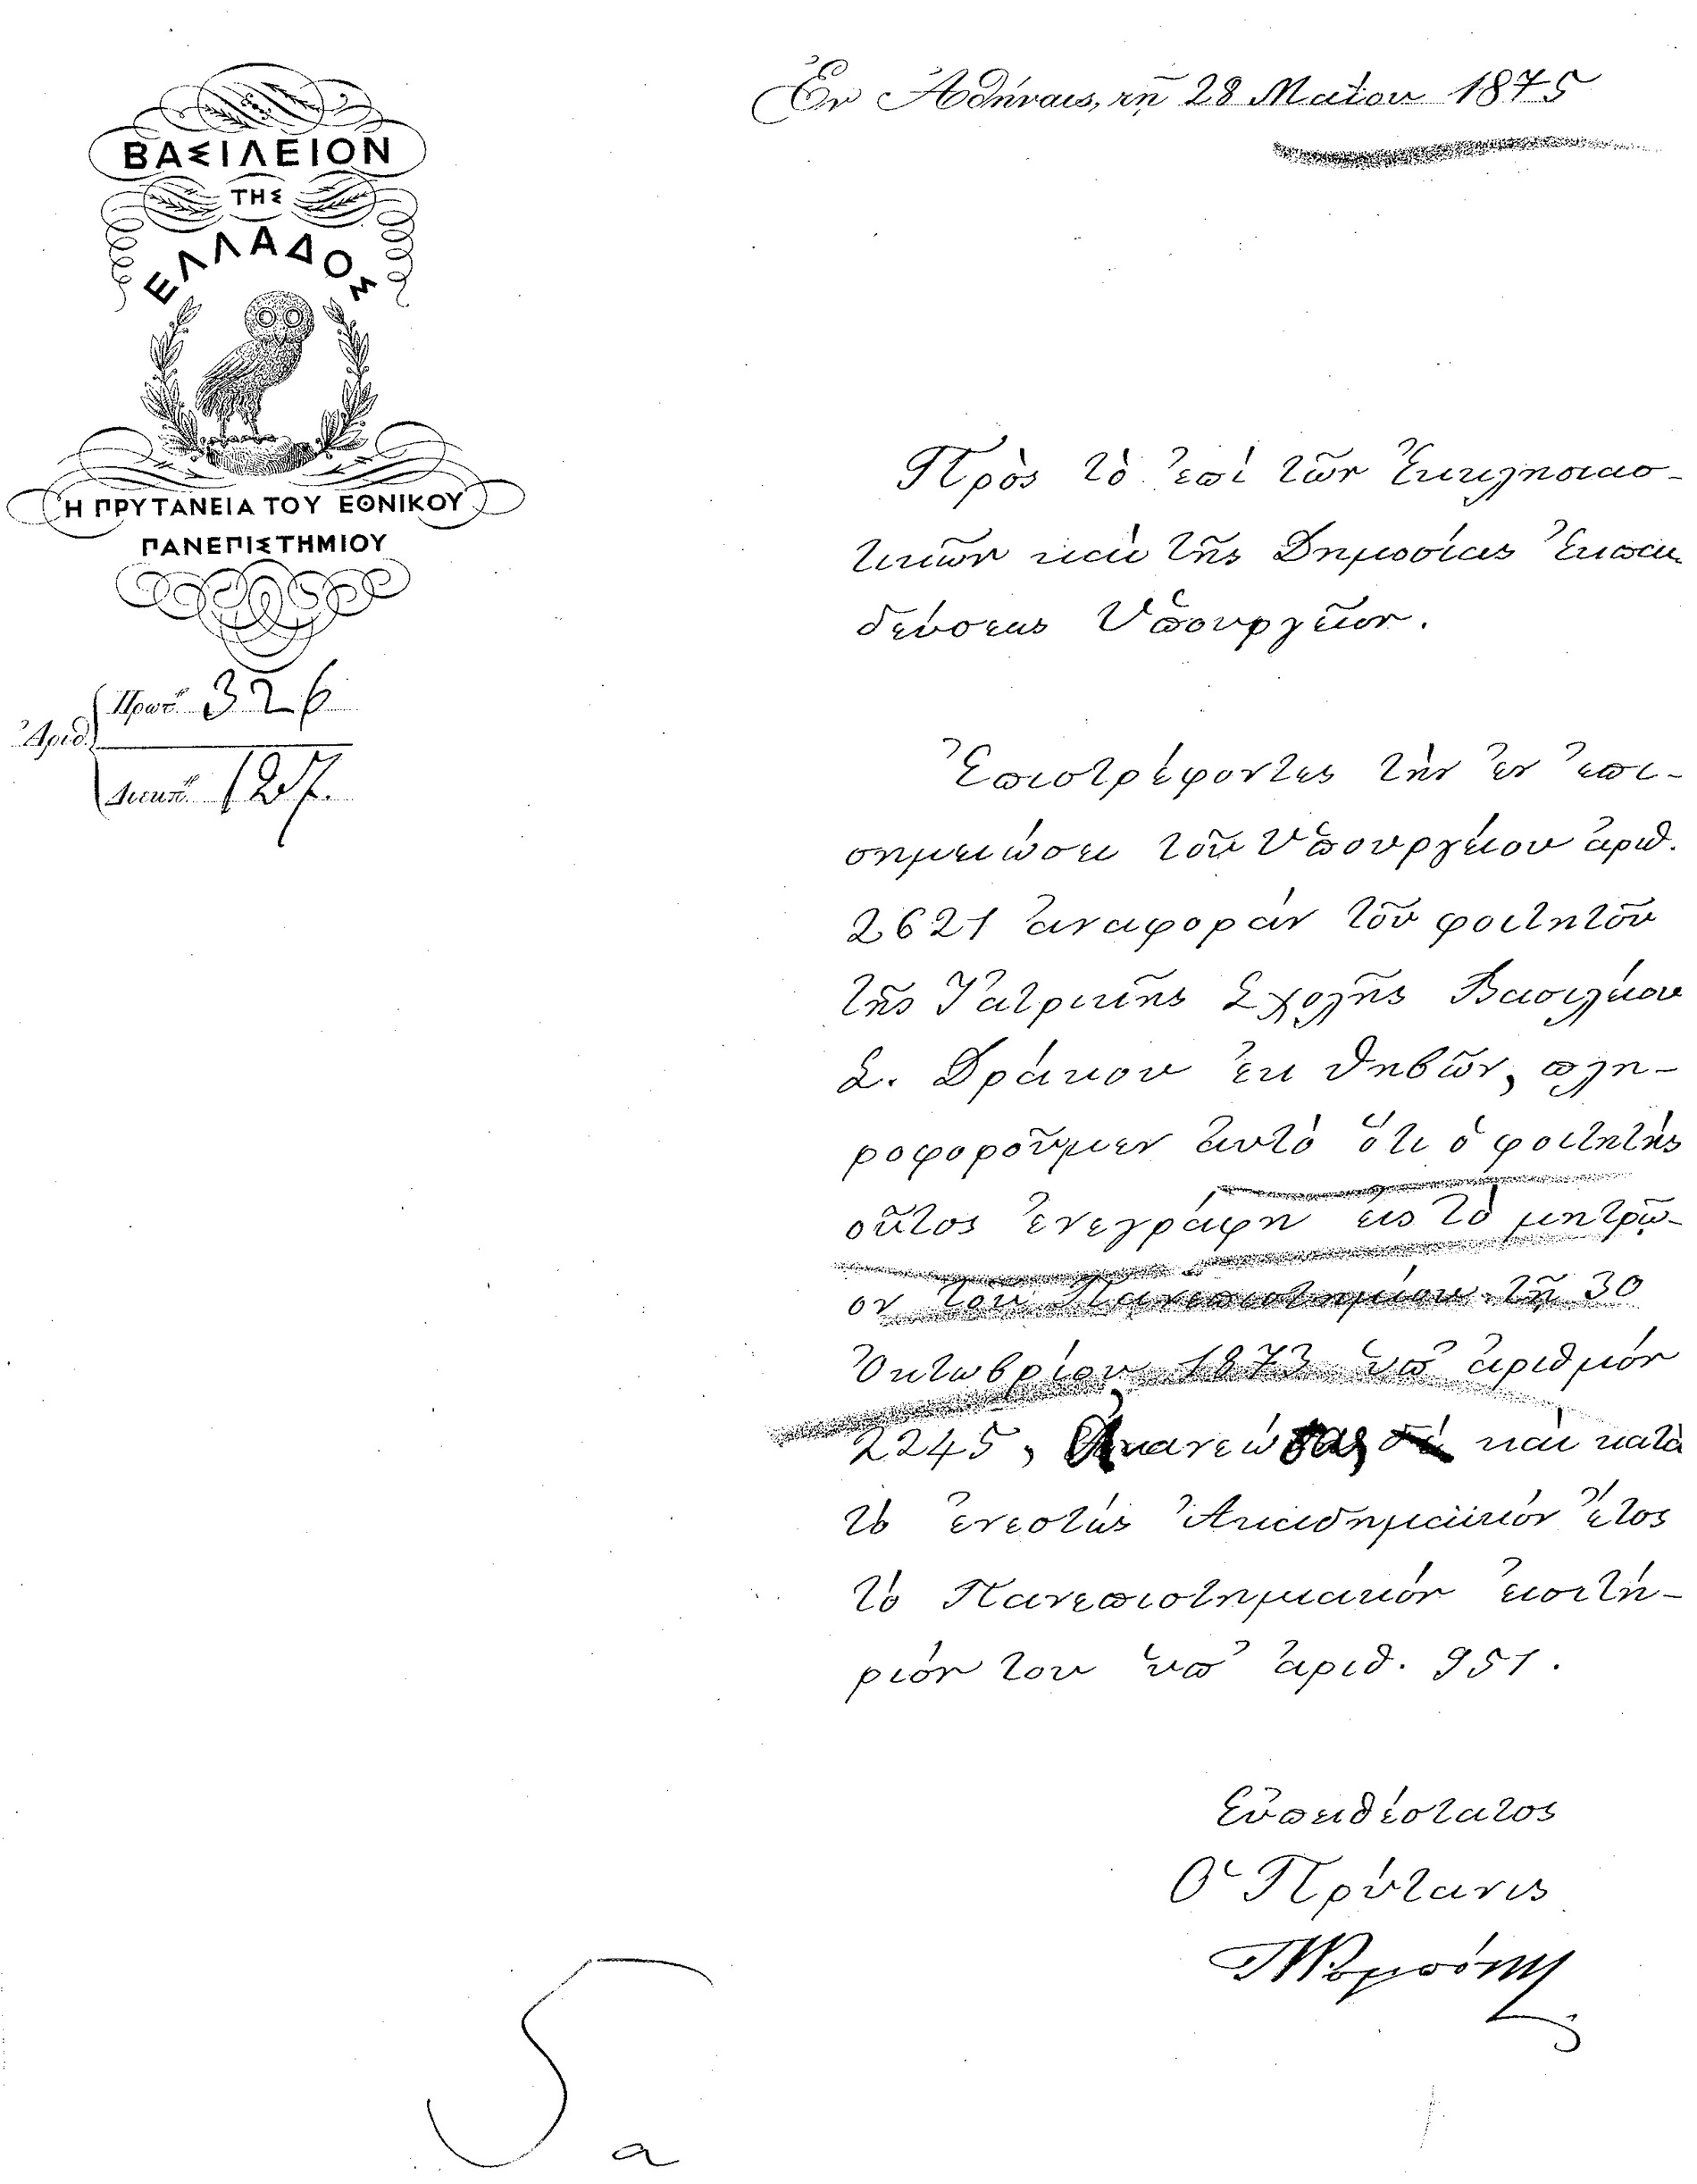 Ἐν Ἀθήναις, τῇ 28 Μαΐου 1875
ΒΑΣΙΛΕΙΟΝ
ΤΗΣ
ΕΛΛΑΔΟΣ
Η ΠΡΥΤΑΝΕΙΑ ΤΟΥ ΕΘΝΙΚΟΥ
ΠΑΝΕΠΙΣΤΗΜΙΟΥ
Πρωτ. 326
Ἀριθ.
Διεκπ. 127.
Πρὸς τὸ ἐπὶ τῶν Ἐκκλησιασ-
τικῶν καὶ τῆς Δημοσίας Ἐκπαι
δεύσεως Ὑπουργεῖον.
Ἐπιστρέφοντες τὴν ἐν ἐπι-
σημειώσει τοῦ Ὑπουργείου ἀριθ.
2621 ἀναφορὰν τοῦ φοιτητοῦ
τῆς Ἰατρικῆς Σχολῆς Βασιλείου
Σ. Δράκου ἐκ Θηβῶν, πλη-
ροφοροῦμεν αὐτὸ ὅτι ὁ φοιτητὴς
οὗτος ἐνεγράφη εἰς τὸ μητρῷ-
ον τοῦ Πανεπιστημίου τῇ 30
Ὀκτωβρίου 1873 ὑπ' ἀριθμὸν
2245, δὲ καὶ κατὰ
τὸ ἐνεστὼς Ἀκαδημαϊκὸν ἔτος
τὸ Πανεπιστημιακόν εἰσιτή-
ριόν του ὑπ' ἀριθ. 951.
Εὐπειθέστατος
Ὁ Πρύτανις
5
a